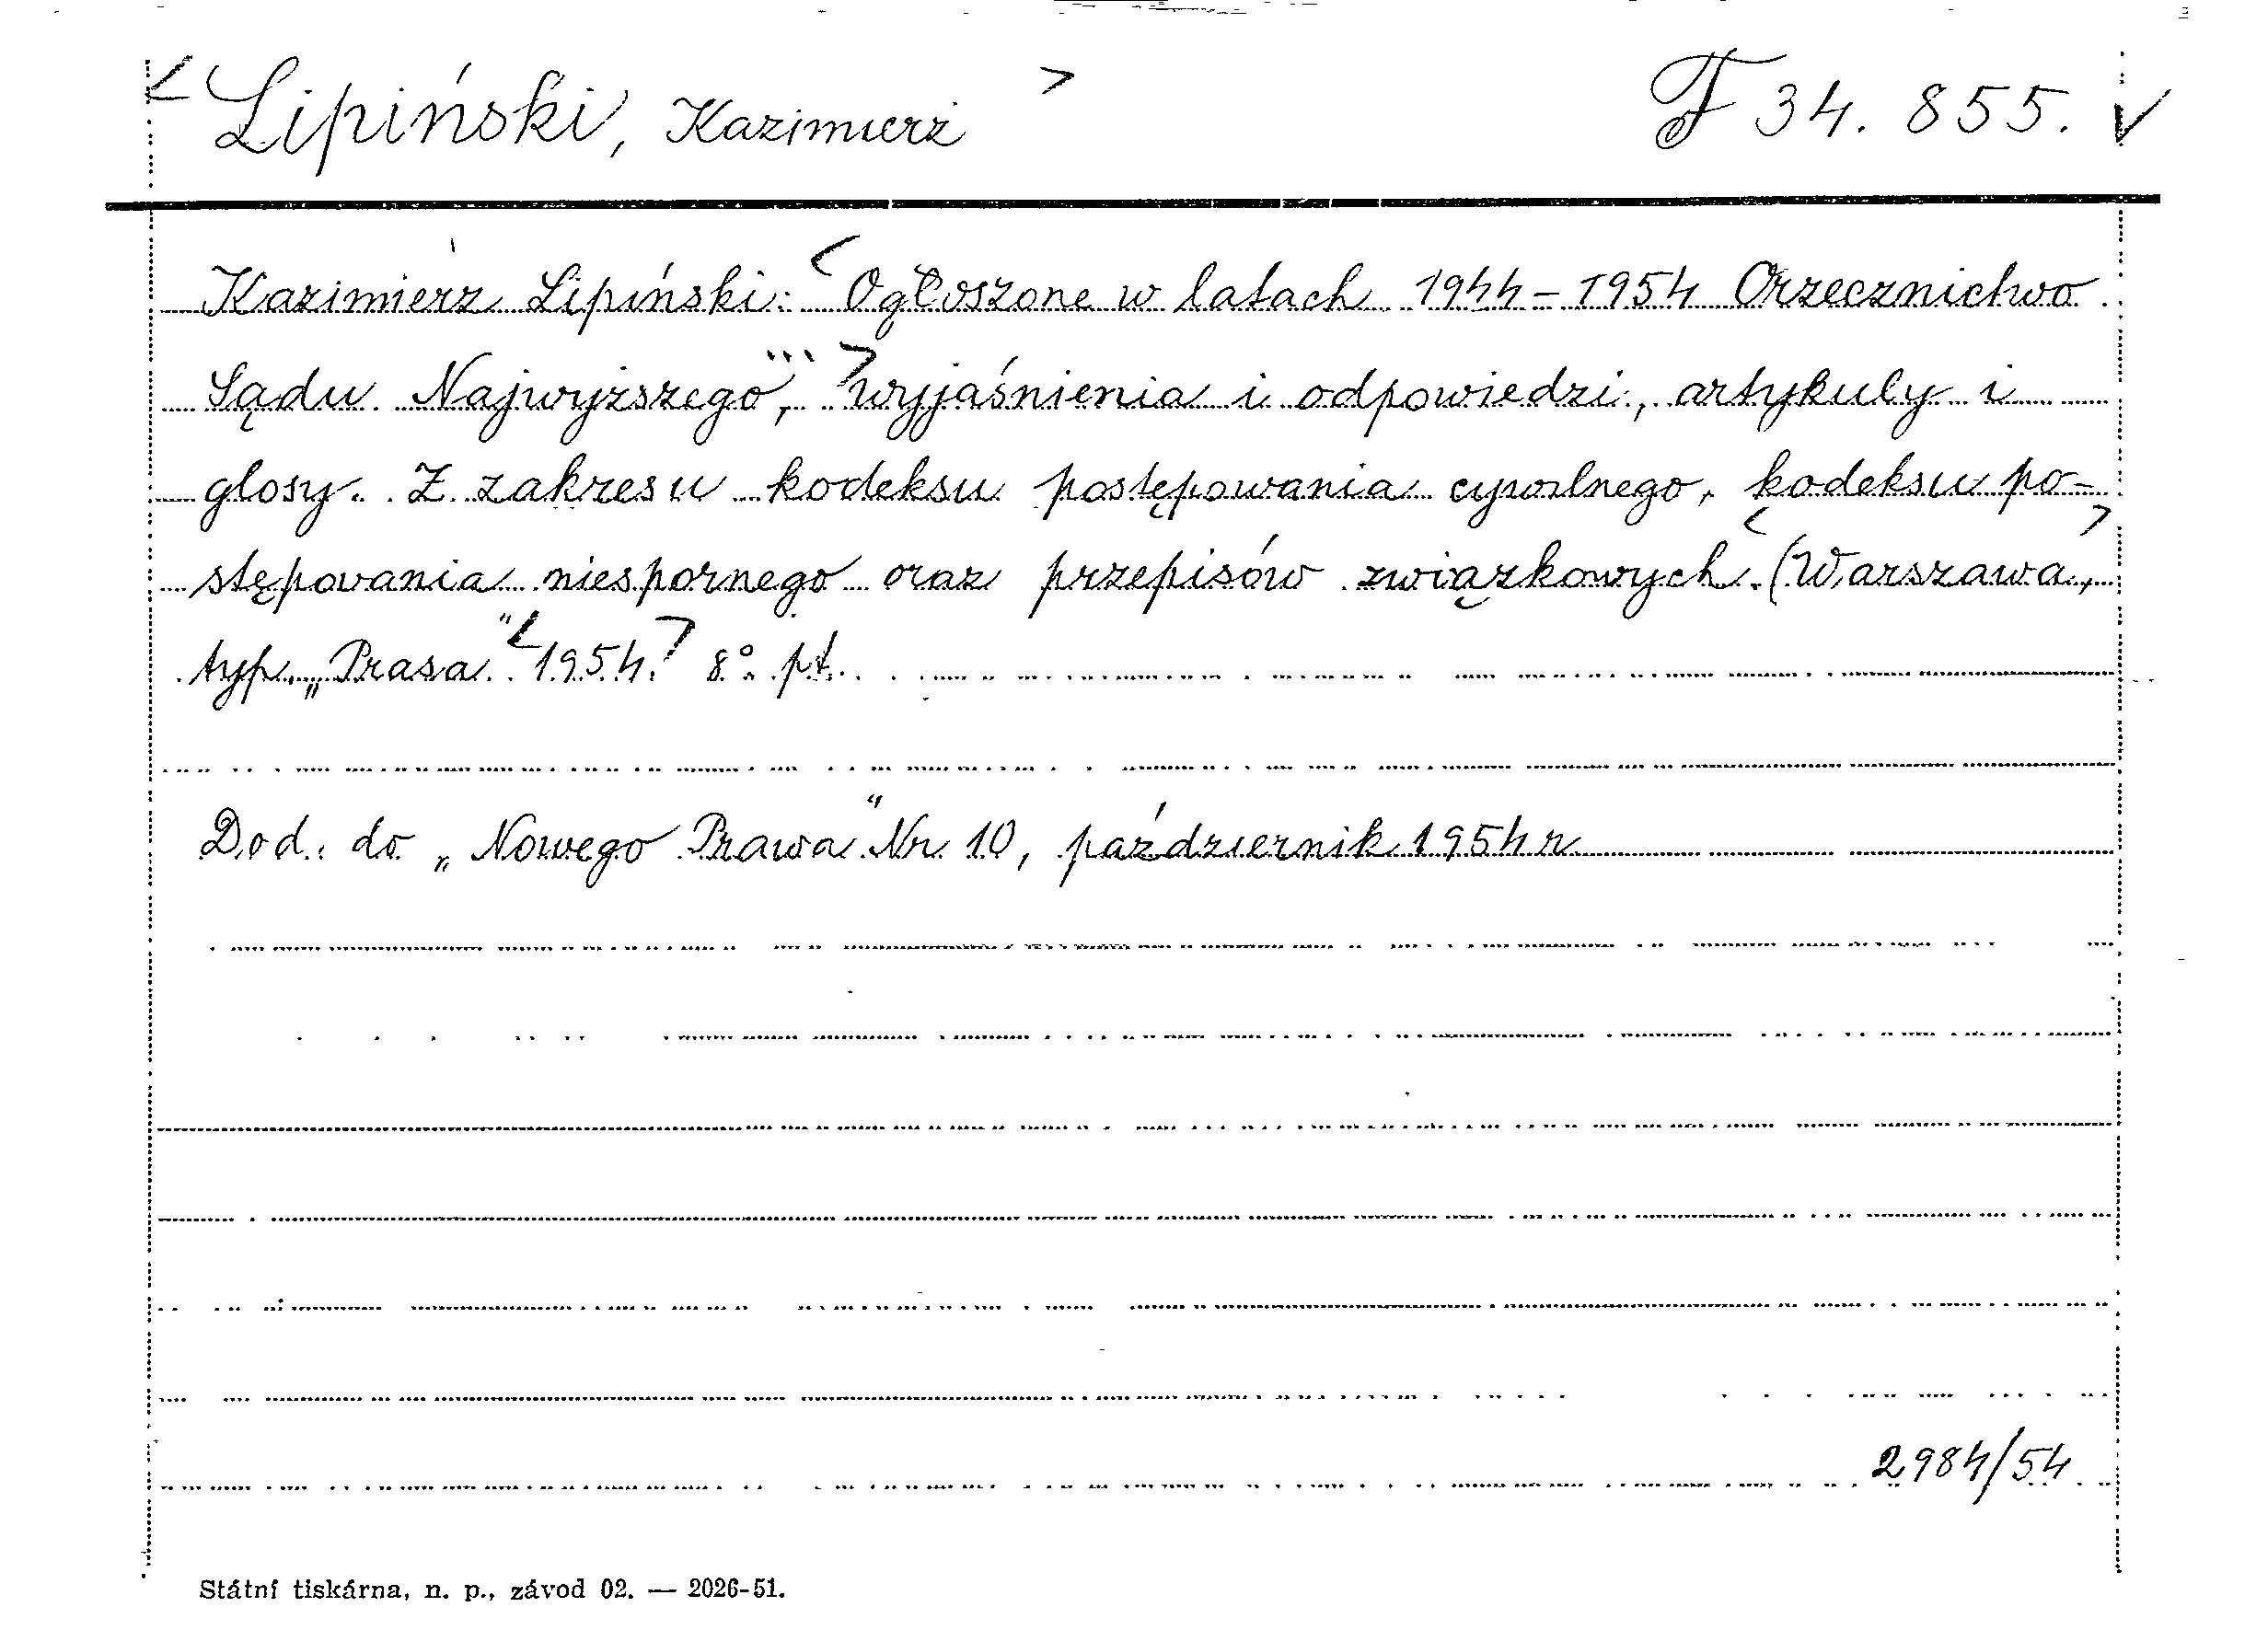 < Lipiński, Kazimierz > F 34.855. √
Kazimierz Lipiński: < Ogłoszone w latach 1944-1954 Orzecznictwo
Sądu Najwyższego, ... > wyjaśnienia i odpowiedzi, artykuly i
glosy. Z zakresu kodeksu postępowania cywilnego, kodeksu po-
stępowania niespornego oraz przepisów związkowych. < (Warszawa, >
typ. „Prasa" < 1954. > 8°. pt.
Dod. do „Nowego Prawa" Nr 10, październik 1954 r
2984/54
Státní tiskárna, n. p., závod 02. — 2026-51.